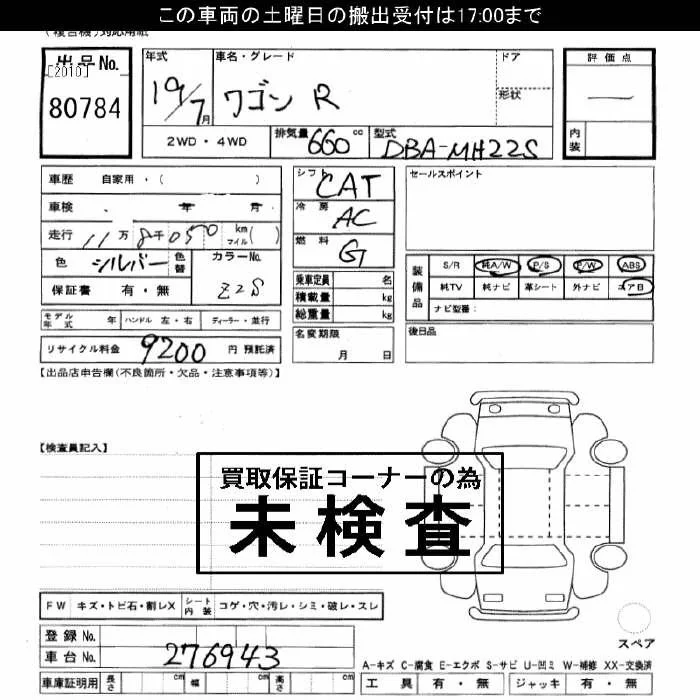 この車両の土曜日の搬出受付は17:00まで
出品No.
[2010]
80784
年式
19/7月
車名・グレード
ワゴン R
ドア
形状
2WD・4WD
排気量 660 cc
型式 DBA-MH22S
評価点
—
内装
車歴 自家用・( )
車検 年 月
走行 11万8千050 km マイル( )
色 シルバー 色替
カラーNo. Z2S
保証書 有・無
モデル年式 年 ハンドル 左・右 ディーラー・並行
リサイクル料金 9200 円 預託済
シフト CAT
冷房 AC
燃料 G
乗車定員 名
積載量 kg
総重量 kg
名変期限
月 日
セールスポイント
装備品
S/R 純A/W P/S P/W ABS
純TV 純ナビ 革シート 外ナビ エアB
ナビ型番:
後日品
【出品店申告欄(不良箇所・欠品・注意事項等)】
【検査員記入】
買取保証コーナーの為
未検査
FW キズ・トビ石・割レX シート内装 コゲ・穴・汚レ・シミ・破レ・スレ
登録No.
車台No. 276943
車庫証明用 長さ cm 幅 cm 高さ cm
スペア
A-キズ C-腐食 E-エクボ S-サビ U-凹ミ W-補修 XX-交換済
工具 有・無 ジャッキ 有・無